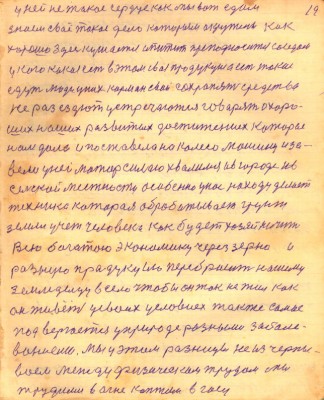 19
у ней не такое сердце как мы вот едим
знаем своё такое дело которым окружены как
хорошо здеся кушается и питит преподносится соседом
у кого какое есть в этом своя продукция есть такие
едут люди у них карман свой сохранять средства
не раз едют устречаются говорять о хоро-
ших наших развитых достижениях которое
нам дало и поставело на колесо машину изо-
вели у ней мотор силаю хвалимся в городе и в
селской местности особенно у нас находу делает
техника которая обробатывает грунт
земли учет человека как будет хозяйничить
всю богатою экономику через зерно и
разную продукцию перебраит нашему
земледелцу всело чтобы он так не жил как
он живёт у своих условиех так же самое
подвергается у природе разными заболе-
ваниеми. Мы у этом разницы не из черпы-
воем между физическим трудом мы
трудими в огне коптим в газу